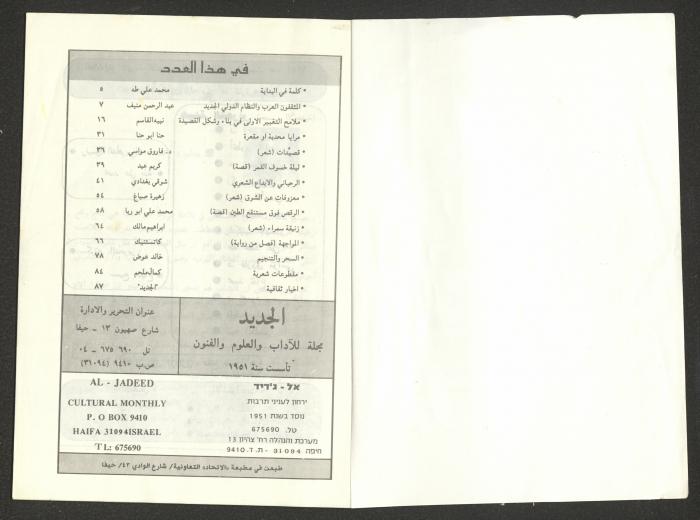 في هذا العدد
• كلمة في البداية محمد علي طه ٥
• المثقفون العرب والنظام الدولي الجديد عبد الرحمن منيف ٧
• ملامح التغيير الاولى في بناء وشكل القصيدة نبيه القاسم ١٦
• مرايا محدبة او مقعرة حنا ابو حنا ٣١
• قصيدات (شعر) د. فاروق مواسي ٣٦
• ليلة خسوف القمر (قصة) كريم عبد ٣٩
• الرحباني والابداع الشعري شوقي بغدادي ٤١
• معزوفات عن الشوق (شعر) زهيرة صباغ ٥٤
• الرقص فوق مستنقع الطين (قصة) محمد علي ابو ريا ٥٨
• زنبقة سمراء (شعر) ابراهيم مالك ٦٤
• المواجهة (فصل من رواية) كاتستنيك ٦٦
• السحر والتنجيم خالد عوض ٧٨
• مقطوعات شعرية كمال ملحم ٨٤
• اخبار ثقافية "الجديد" ٨٧
الجديد
مجلة للآداب والعلوم والفنون
تأسست سنة ١٩٥١
عنوان التحرير والادارة
شارع صهيون ١٣ - حيفا
تل ٦٩٠ ٦٧٥ - ٠٤
ص.ب ٩٤١٠ (٣١٠٩٤)
AL - JADEED
CULTURAL MONTHLY
P. O BOX 9410
HAIFA 31094ISRAEL
TL: 675690
אל - ג'דיד
ירחון לעניני תרבות
נוסד בשנת 1951
טל. 675690
מערכת והנהלה רח' צהיון 13
חיפה 31094 - ת.ד. 9410
طبعت في مطبعة «الاتحاد» التعاونية/ شارع الوادي ٤٢/ حيفا